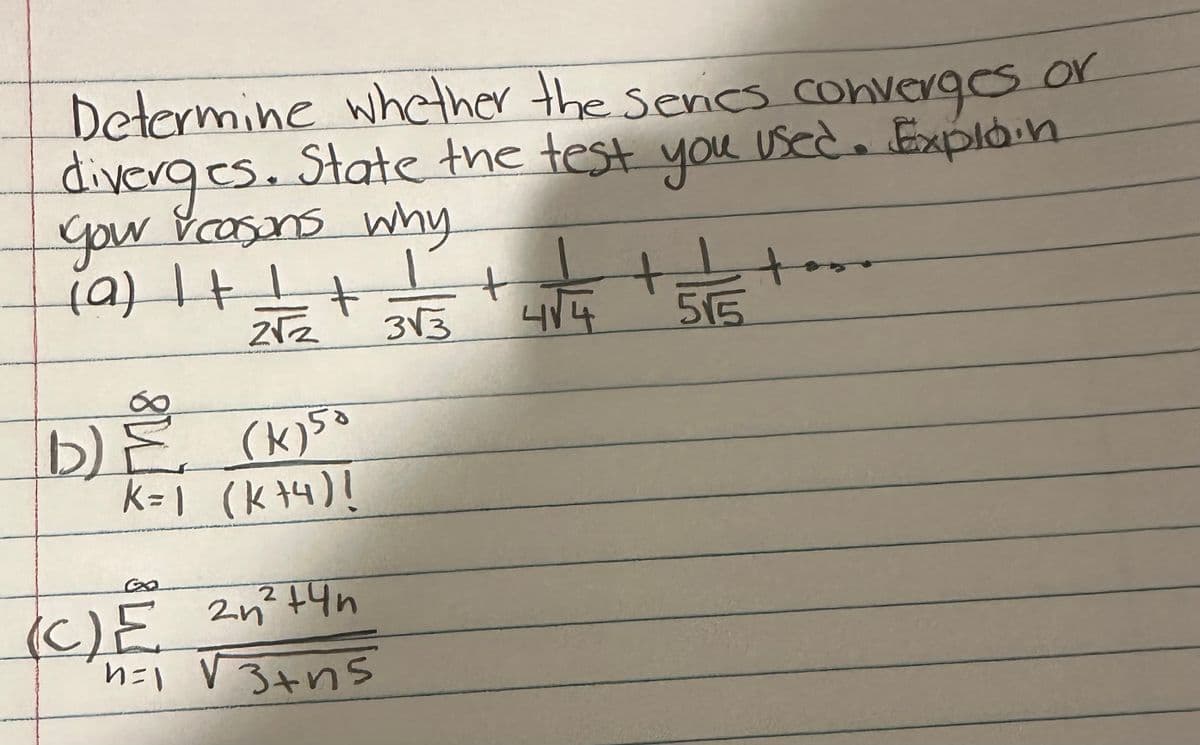 Determine whether the series converges or
diverges. State the test you used. Explain
your reasons why
(a) 1 + 1/(2√2) + 1/(3√3) + 1/(4√4) + 1/(5√5) + ...
b) ∞ Σ k=1 (k)^50 / (k+4)!
(c) ∞ Σ n=1 (2n² + 4n) / √(3+n^5)